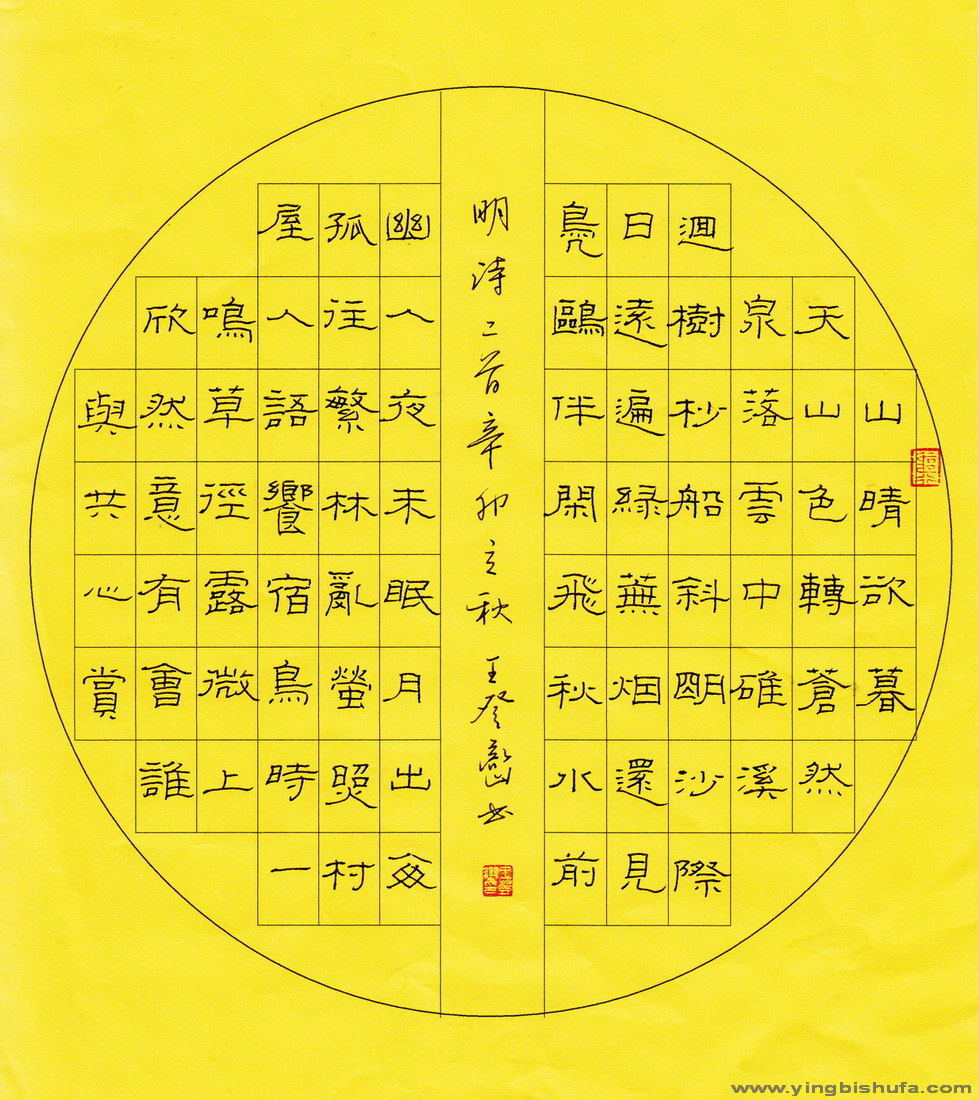 山晴欲暮
天山色轉蒼然
泉落雲中碓溪
迴樹杪船斜明沙際
日遠遍緑蕪烟還見
鳧鷗伴閑飛秋水前
明詩二首辛卯立秋王書
幽人夜未眠月出每
孤往繁林亂螢照村
屋人語饗宿鳥時一
鳴草徑露微上
欣然意有會誰
與共心賞
www.yingbishufa.com